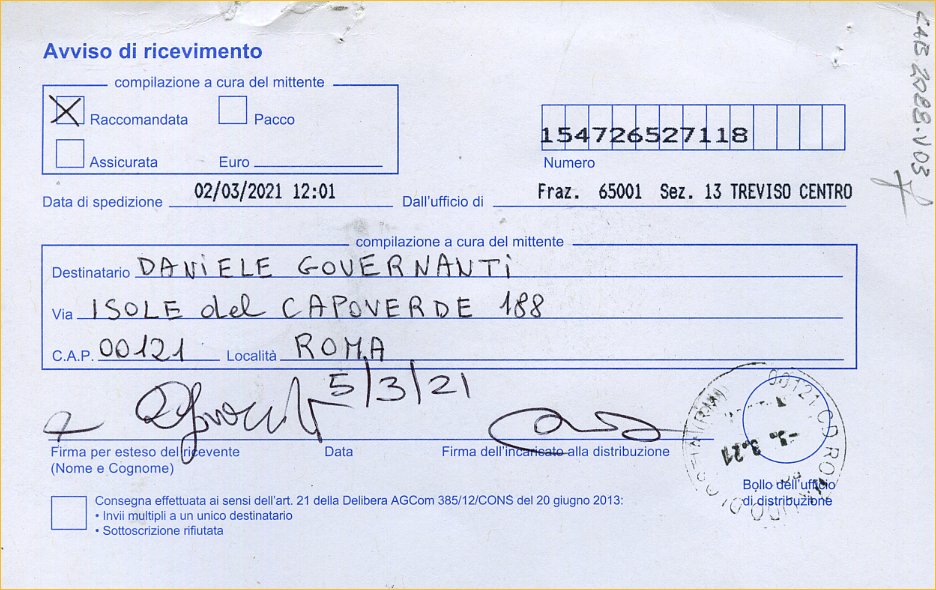 Avviso di ricevimento
compilazione a cura del mittente
Raccomandata Pacco
Assicurata Euro
154726527118
Numero
Data di spedizione 02/03/2021 12:01 Dall'ufficio di Fraz. 65001 Sez. 13 TREVISO CENTRO
CAB 2088.V03
compilazione a cura del mittente
Destinatario DANIELE GOVERNANTI
Via ISOLE del CAPOVERDE 188
C.A.P. 00121 Località ROMA
5/3/21
Firma per esteso del ricevente Data Firma dell'incaricato alla distribuzione
(Nome e Cognome)
00121 ROMA
3.21
Bollo dell'ufficio
di distribuzione
Consegna effettuata ai sensi dell'art. 21 della Delibera AGCom 385/12/CONS del 20 giugno 2013:
• Invii multipli a un unico destinatario
• Sottoscrizione rifiutata